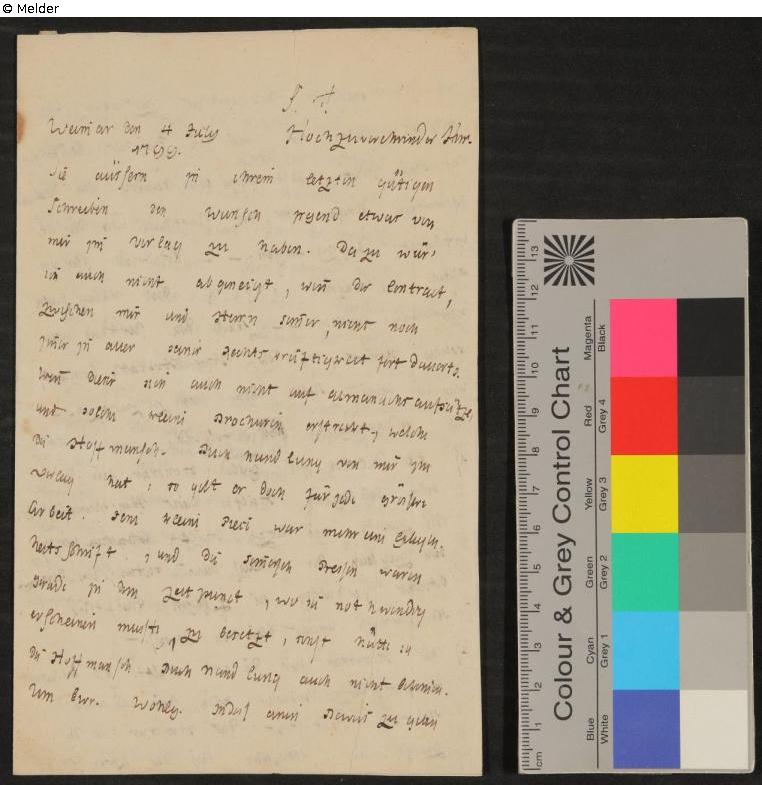 © Melder
P. P.
Weimar den 4 July
1799.
Hochzuverehrender Herr.
Sie äussern in ihrem letzten gütigen
Schreiben den wunsch irgend etwas von
mir in verlag zu haben. Dazu wär'
ich auch nicht abgeneigt, weñ der Contract,
zwischen mir und Herrn noch
jmer in aller seiner rechtskräftigkeit fort dauerte.
Weñ dieser sich auch nicht auf almanachsaufsätze,
und solche kleine Brochuren erstreckt, welche
die Hoffmansch. Buchhandlung von mir im
Verlag hat, so gilt er doch für jede grössre
Arbeit. Jene kleine war mehr eine Gelegen-
heitsschrift, und die Pressen waren
gerade in dem zeitpunct, wo sie nothwendig
erscheinen musste, zu besetzt, sonst hätte sie
die Hoffmansch Buchhandlung auch nicht bekomen.
Um Ewr. Wohlg. indess einen Beweis zu geben
cm 1 2 3 4 5 6 7 8 9 10 11 12 13
Colour & Grey Control Chart
Blue Cyan Green Yellow Red Magenta
White Grey 1 Grey 2 Grey 3 Grey 4 Black